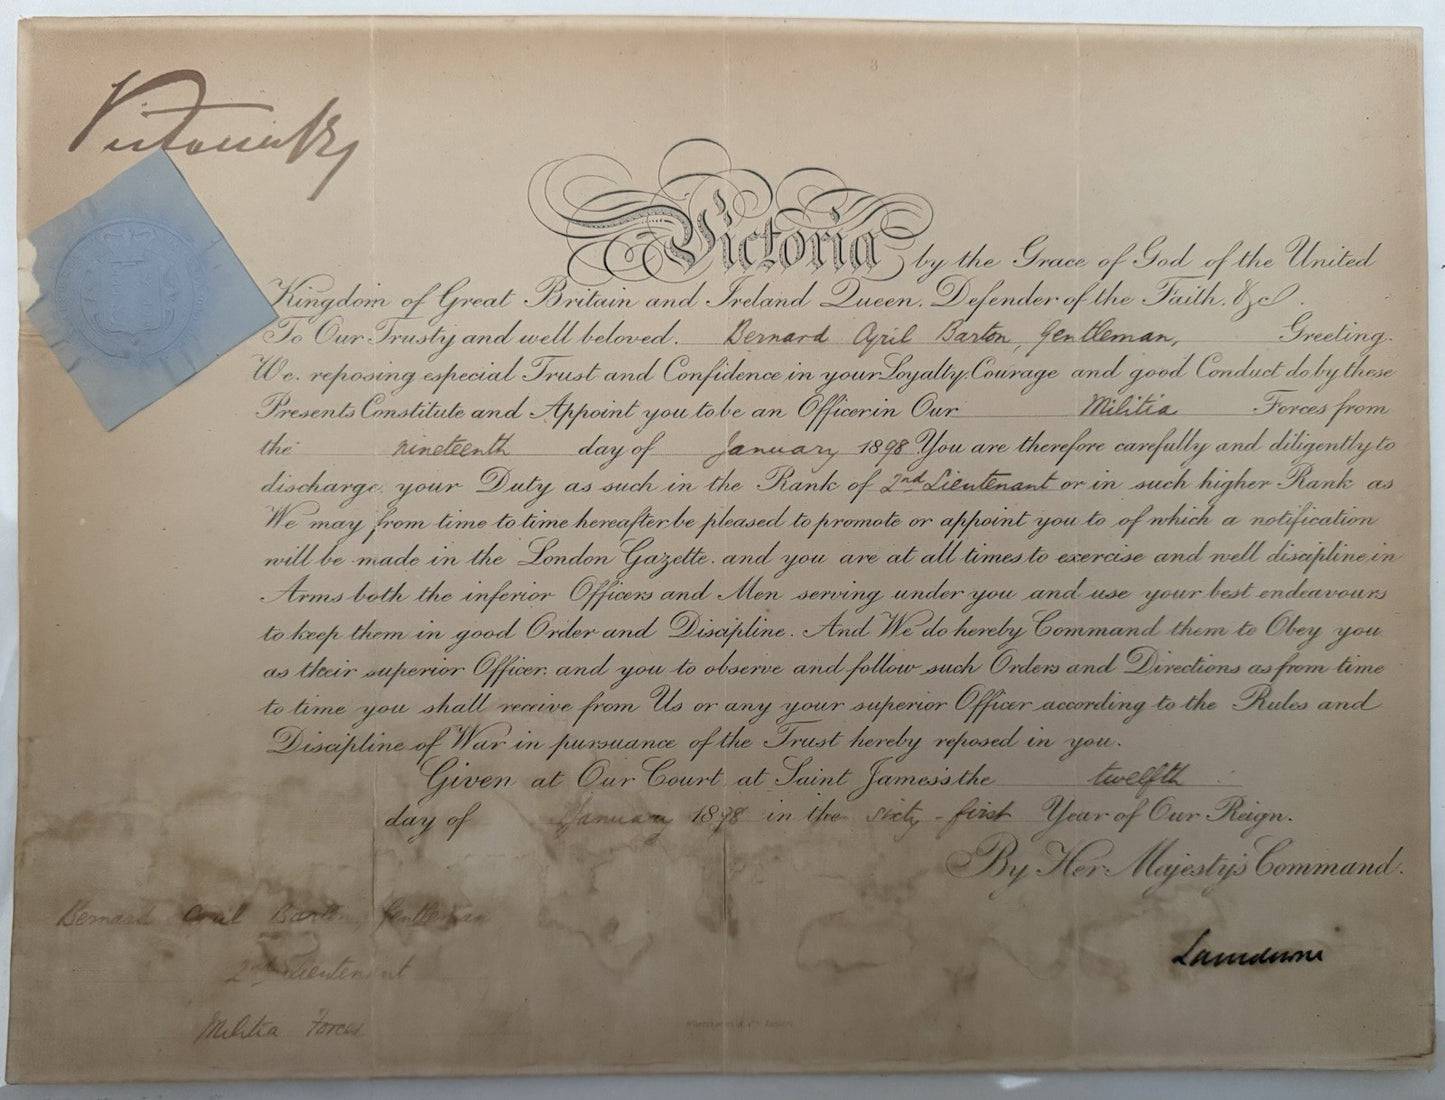 Victoria R
Victoria by the Grace of God of the United
Kingdom of Great Britain and Ireland Queen. Defender of the Faith. &c.
To Our Trusty and well beloved. Bernard Cyril Barton, Gentleman, Greeting.
We. reposing especial Trust and Confidence in your Loyalty. Courage and good Conduct do by these
Presents Constitute and Appoint you to be an Officer in Our Militia Forces from
the nineteenth day of January 1898 You are therefore carefully and diligently to
discharge your Duty as such in the Rank of 2nd Lieutenant or in such higher Rank as
We may from time to time hereafter be pleased to promote or appoint you to of which a notification
will be made in the London Gazette. and you are at all times to exercise and well discipline in
Arms both the inferior Officers and Men serving under you and use your best endeavours
to keep them in good Order and Discipline. And We do hereby Command them to Obey you
as their superior Officer. and you to observe and follow such Orders and Directions as from time
to time you shall receive from Us or any your superior Officer according to the Rules and
Discipline of War in pursuance of the Trust hereby reposed in you.
Given at Our Court at Saint James's the twelfth
day of January 1898 in the sixty-first Year of Our Reign.
By Her Majesty's Command.
Bernard Cyril Barton, Gentleman
Lansdowne
2nd Lieutenant
Militia Forces